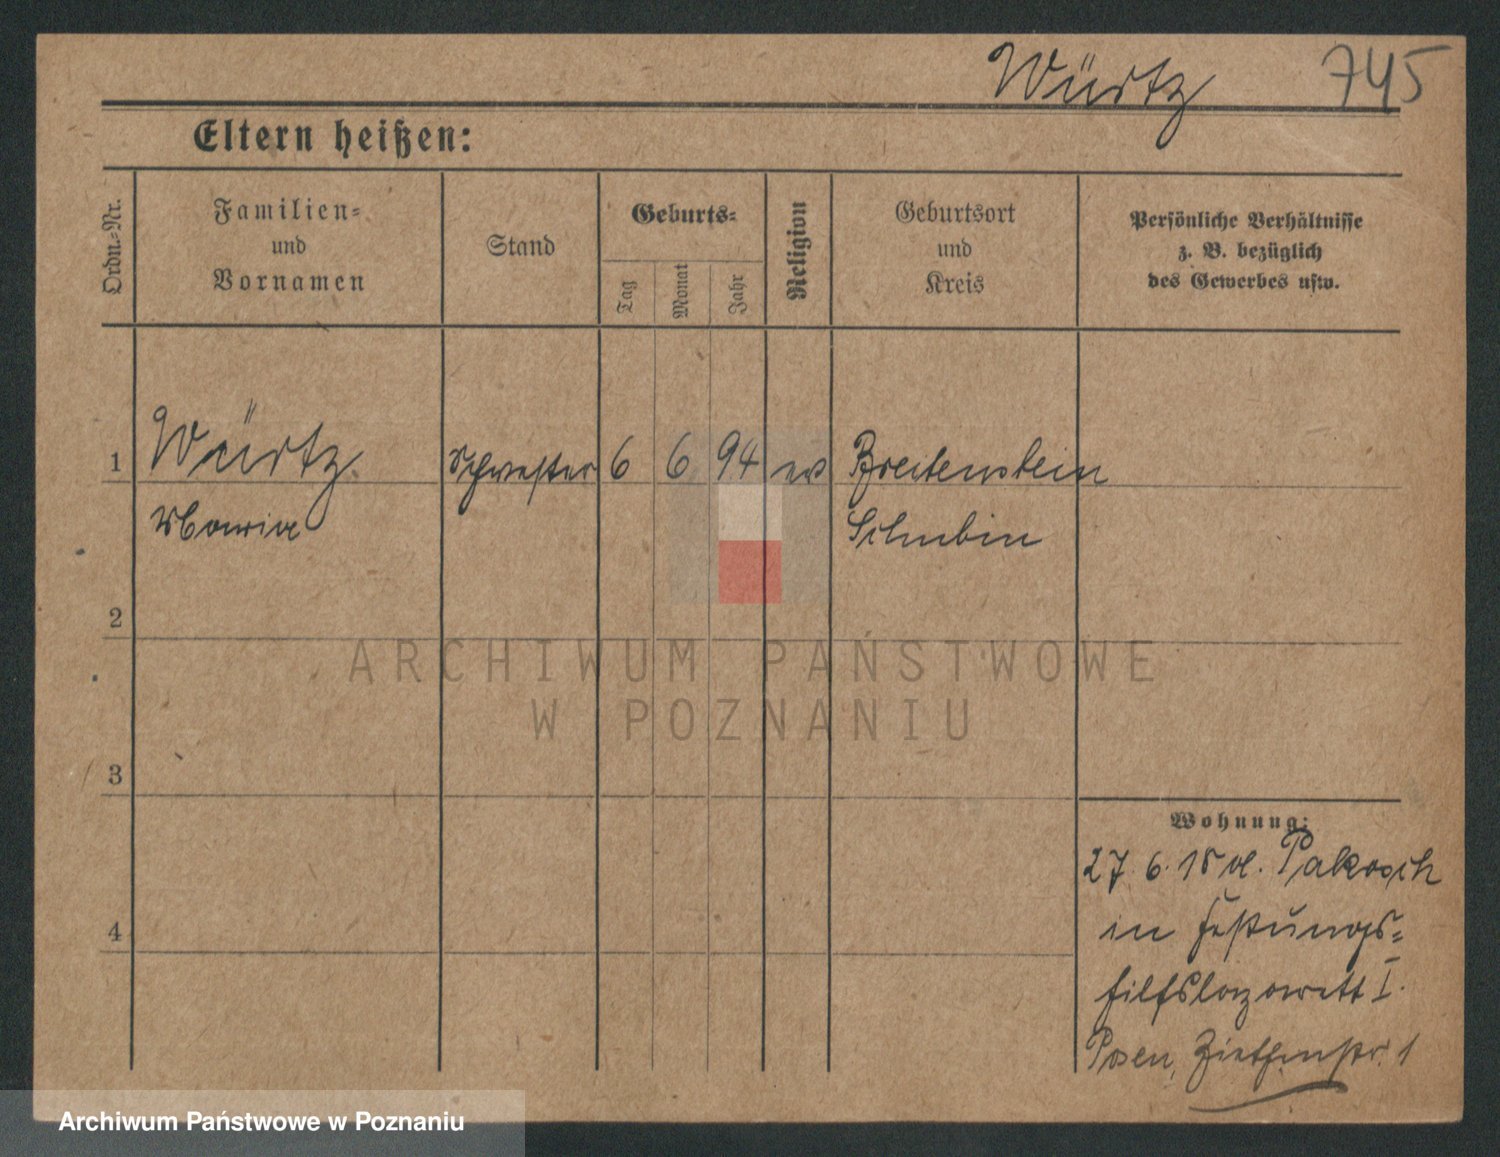 Würtz 745
Eltern heißen:
Ordn.-Nr.
Familien-
und
Vornamen
Stand
Geburts-
Tag
Monat
Jahr
Religion
Geburtsort
und
Kreis
Persönliche Verhältnisse
z. B. bezüglich
des Gewerbes usw.
1 Würtz Schwester 6 6 94 ev Breitenstein
Maria Schubin
2
3
4
Wohnung:
27 6. 18 v. Pakosch
in Festungs-
hilfslazarett I.
Posen, Ziethenstr. 1
ARCHIWUM PAŃSTWOWE
W POZNANIU
Archiwum Państwowe w Poznaniu